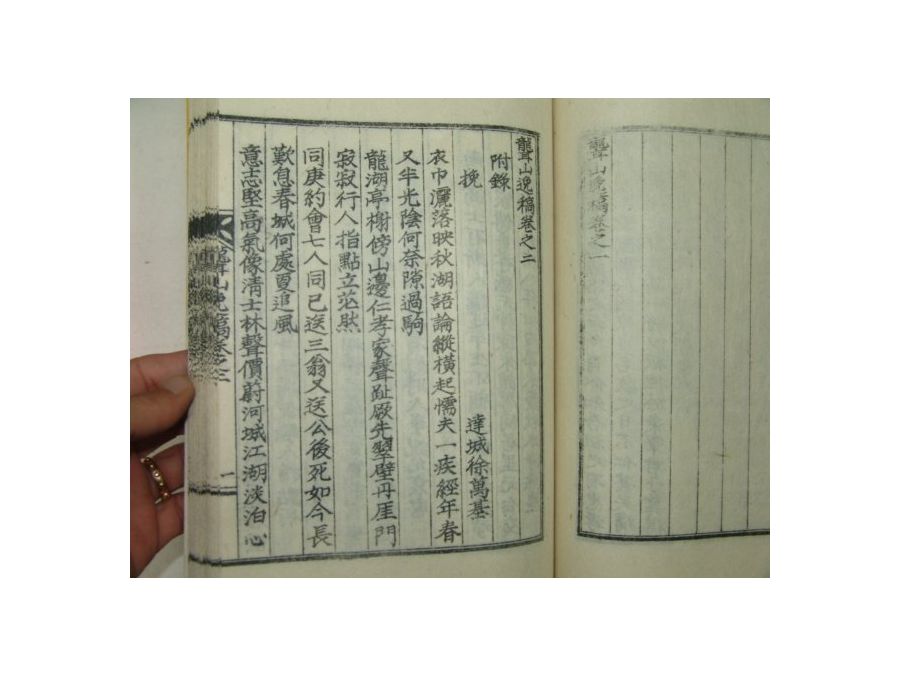 聾山逸稿卷之一
聾山逸稿卷之二
附錄
挽
達城徐萬基
衣巾灑落映秋湖語論縱橫起懦夫一疾經年春
又半光陰何奈隙過駒
龍湖亭榭傍山邊仁孝家聲趾厥先翠壁丹厓門
寂寂行人指點立茫然
同庚約會七人同已送三翁又送公後死如今長
歎息春城何處更追風
意志堅高氣像淸士林聲價蔚河城江湖淡泊心
聾山逸稿卷之二
一